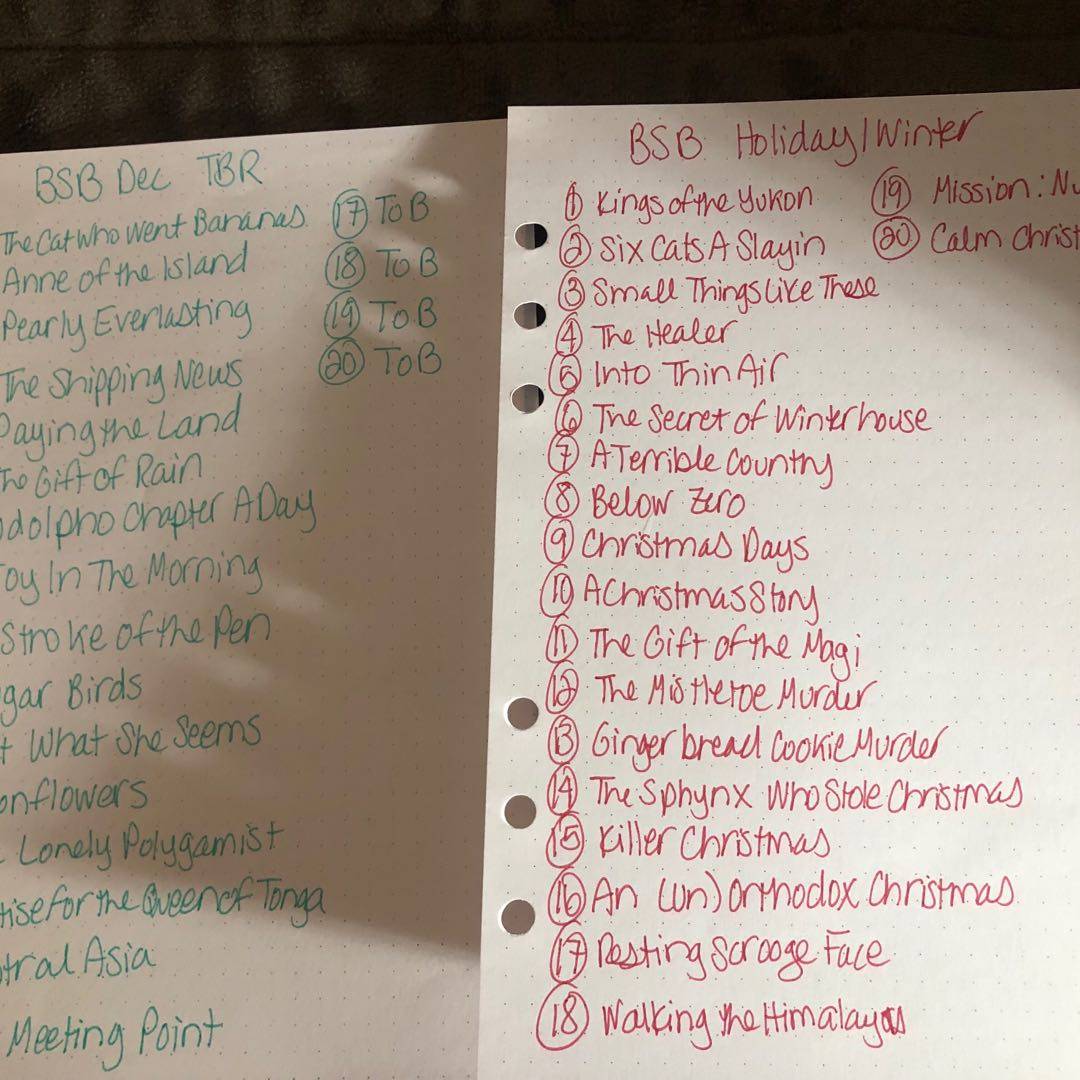 BSB Dec TBR
The Cat Who Went Bananas
Anne of the Island
Pearly Everlasting
The Shipping News
Paying the Land
The Gift of Rain
Chapter A Day
Joy In The Morning
Stroke of the Pen
Birds
What She Seems
Lonely Polygamist
for the Queen of Tonga
Asia
Meeting Point
17 ToB
18 ToB
19 ToB
20 ToB
BSB Holiday/Winter
1 Kings of the Yukon
2 Six Cats A Slayin
3 Small Things Like These
4 The Healer
5 Into Thin Air
6 The Secret of Winterhouse
7 A Terrible Country
8 Below Zero
9 Christmas Days
10 A Christmas Story
11 The Gift of the Magi
12 The Mistletoe Murder
13 Gingerbread Cookie Murder
14 The Sphynx Who Stole Christmas
15 Killer Christmas
16 An (un)orthodox Christmas
17 Resting Scrooge Face
18 Walking the Himalayas
19 Mission: Nu
20 Calm Christ